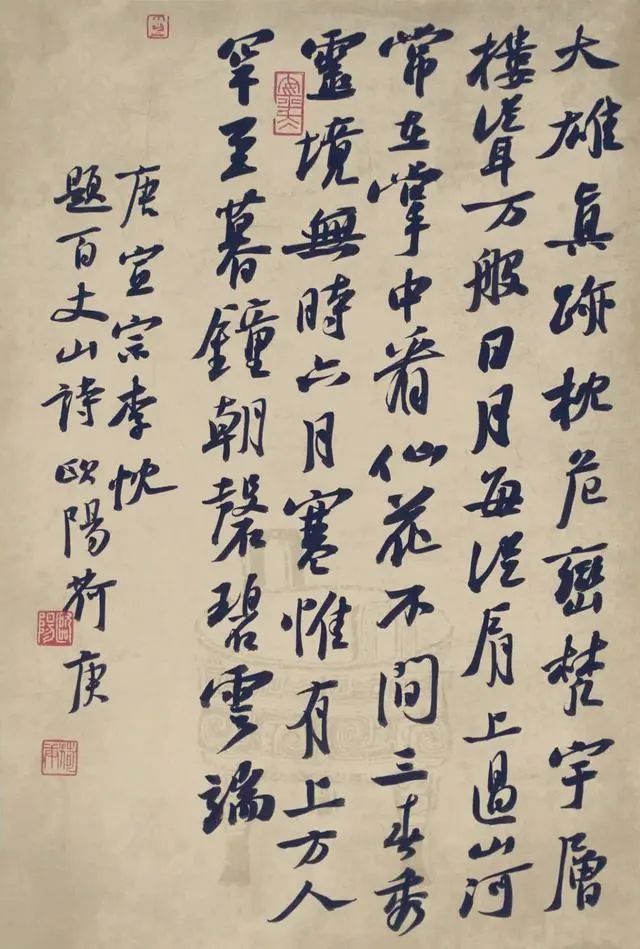 大雄眞跡枕危巒梵宇層
樓聳万般日月每從肩上過山河
常在掌中看仙花不間三春秀
靈境無時六月寒惟有上方人
罕至暮鐘朝磬碧雲端
唐宣宗李忱
題百丈山詩欧陽荷庚